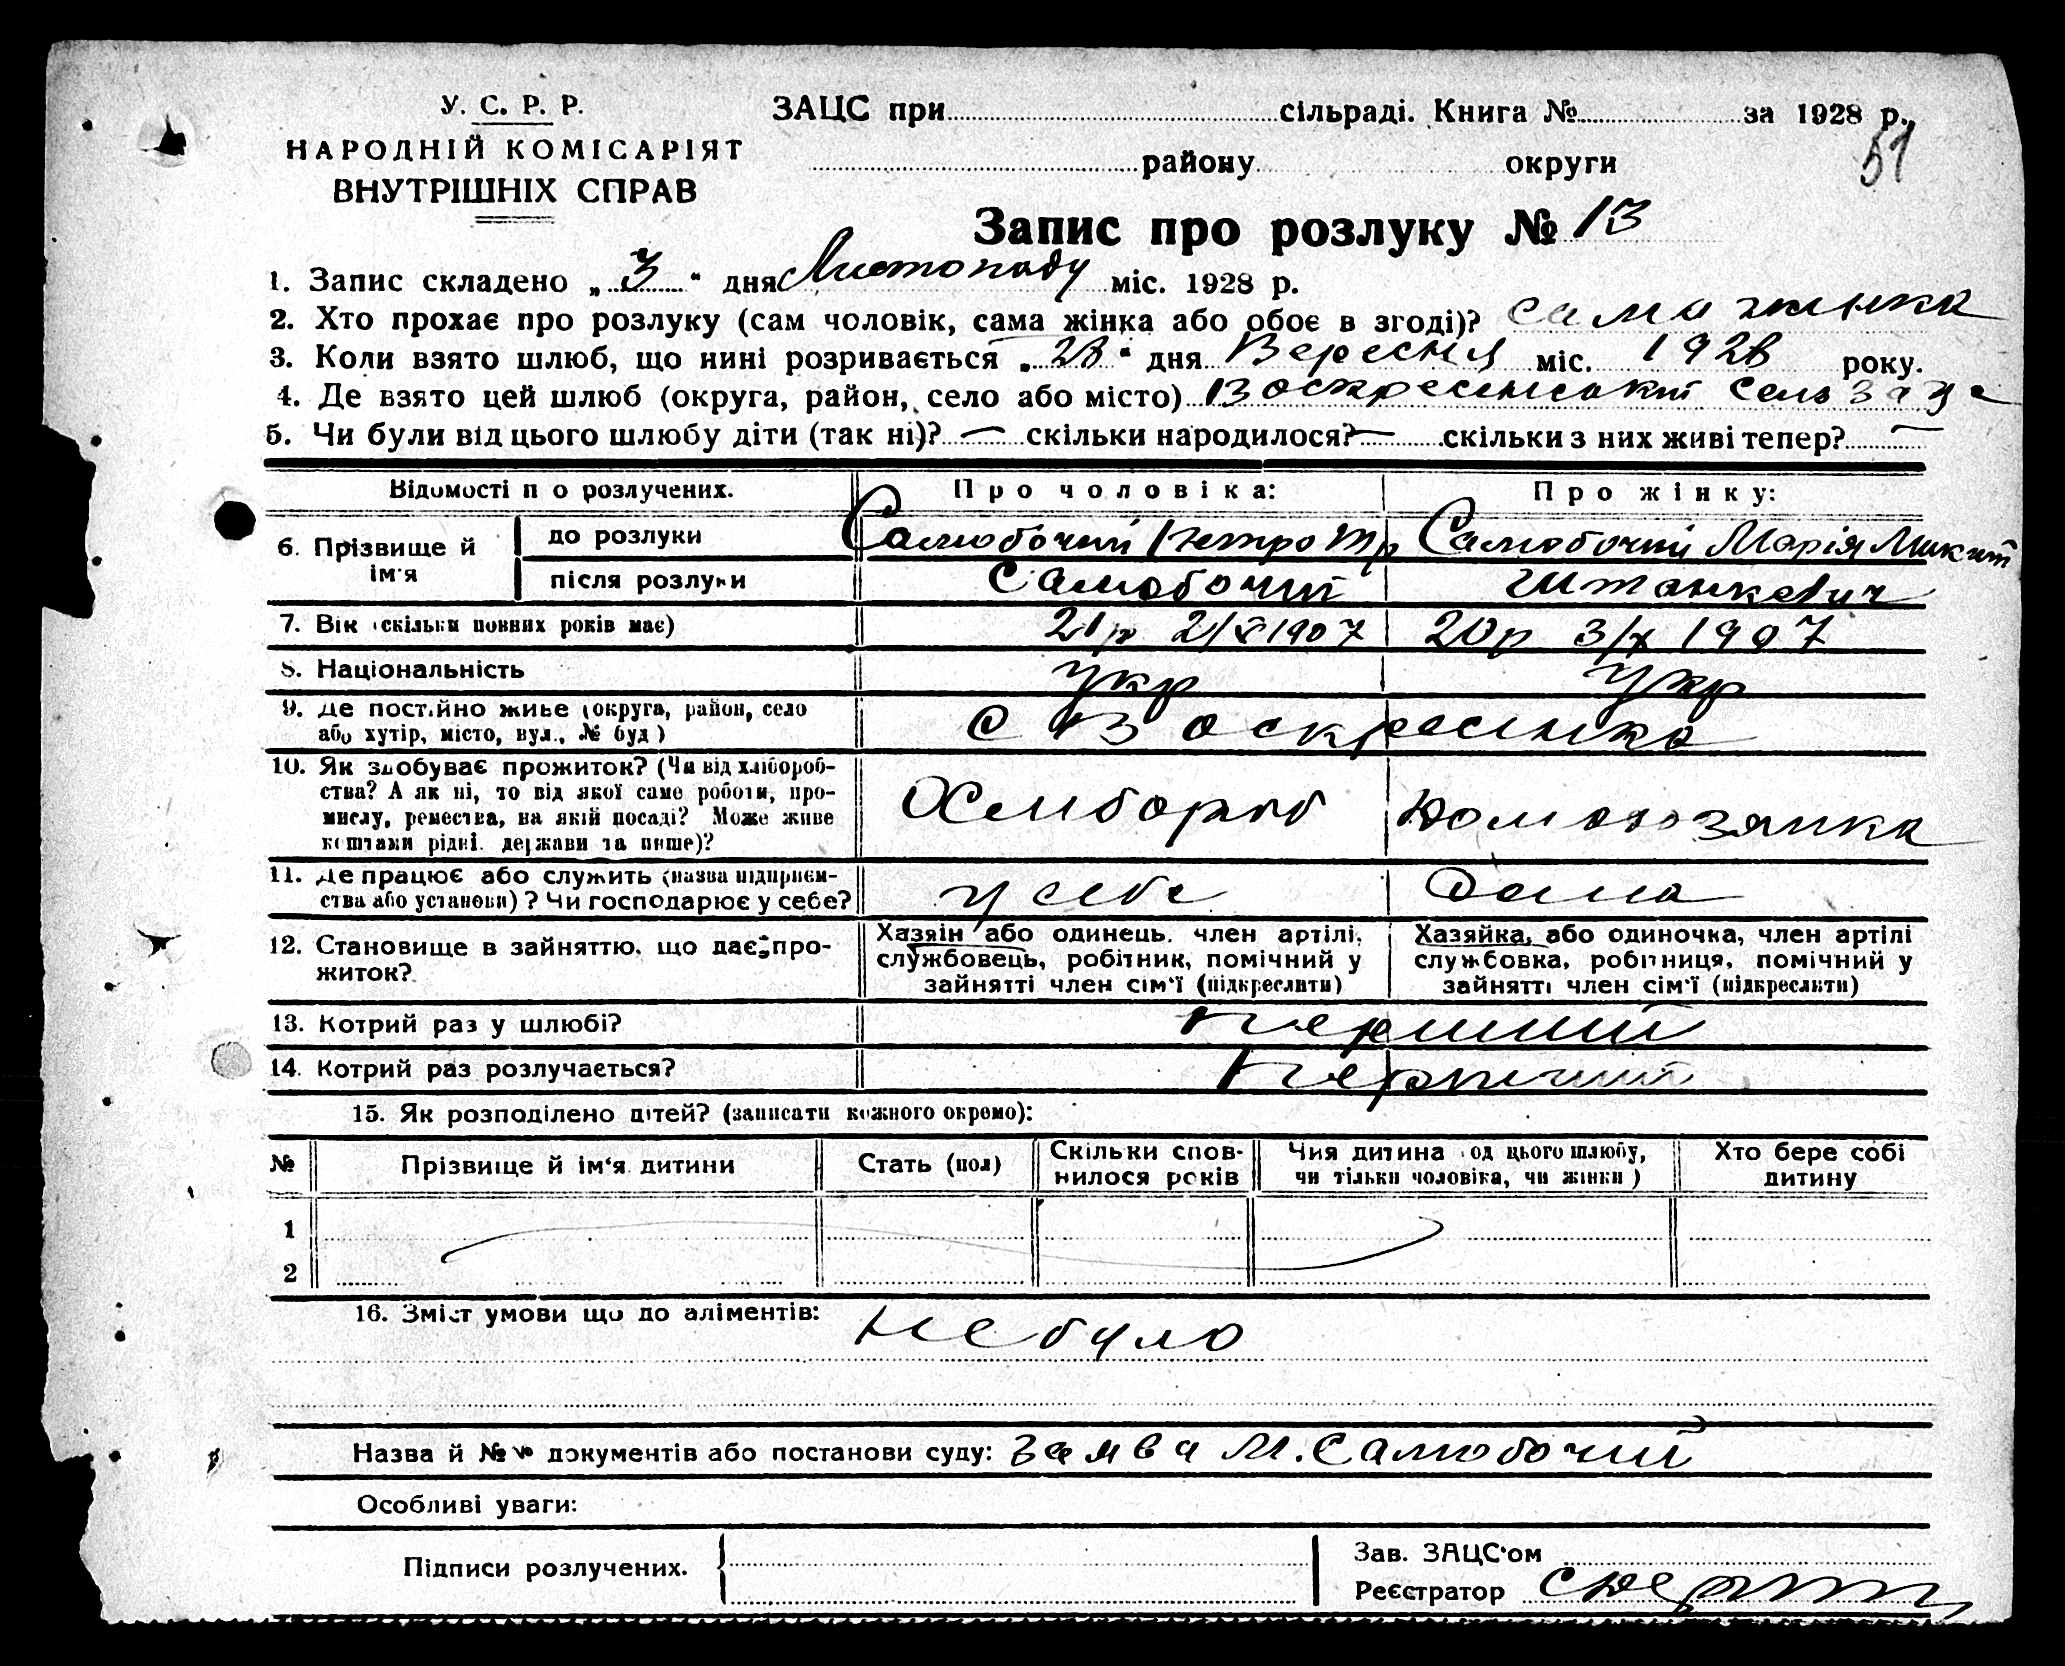 У. С. Р. Р.
НАРОДНІЙ КОМІСАРІЯТ
ВНУТРІШНІХ СПРАВ
ЗАЦС при сільраді. Книга № за 1928 р.
району округи
51
Запис про розлуку № 13
1. Запис складено „ 3 " дня Листопаду міс. 1928 р.
2. Хто прохає про розлуку (сам чоловік, сама жінка або обоє в згоді)? сама жинка
3. Коли взято шлюб, що нині розривається „ 28 " дня Вересня міс. 1928 року.
4. Де взято цей шлюб (округа, район, село або місто) Воскресенський сель загс
5. Чи були від цього шлюбу діти (так ні)? — скільки народилося? — скільки з них живі тепер? —
Відомості по розлучених. Про чоловіка: Про жінку:
6. Прізвище й ім'я до розлуки Самобочий Петро Тр Самобочий Марія Микит
після розлуки Самобочий Штанкевич
7. Вік (скільки повних років має) 21 р 2/X 1907 20 р 3/X 1907
8. Національність укр укр
9. Де постійно живе (округа, район, село
або хутір, місто, вул., № буд) с Воскресенка
10. Як здобуває прожиток? (Чи від хлібороб-
ства? А як ні, то від якої саме роботи, про-
мислу, ремества, на якій посаді? Може живе
коштами рідні, держави та инше)? Хлибороб Домохозянка
11. Де працює або служить (назва підприєм-
ства або установи)? Чи господарює у себе? у себе Дома
12. Становище в зайняттю, що дає про-
житок?
Хазяїн або одинець, член артілі,
службовець, робітник, помічний у
зайнятті член сім'ї (підкреслити)
Хазяйка, або одиночка, член артілі
службовка, робітниця, помічний у
зайнятті член сім'ї (підкреслити)
13. Котрий раз у шлюбі? Перший
14. Котрий раз розлучається? Перший
15. Як розподілено дітей? (записати кожного окремо):
№ Прізвище й ім'я дитини Стать (пол) Скільки спов-
нилося років Чия дитина (од цього шлюбу,
чи тільки чоловіка, чи жінки) Хто бере собі
дитину
1
2
16. Зміст умови що до аліментів: Не було
Назва й №№ документів або постанови суду: Заява М. Самобочий
Особливі уваги:
Підписи розлучених.
Зав. ЗАЦС'ом
Реєстратор